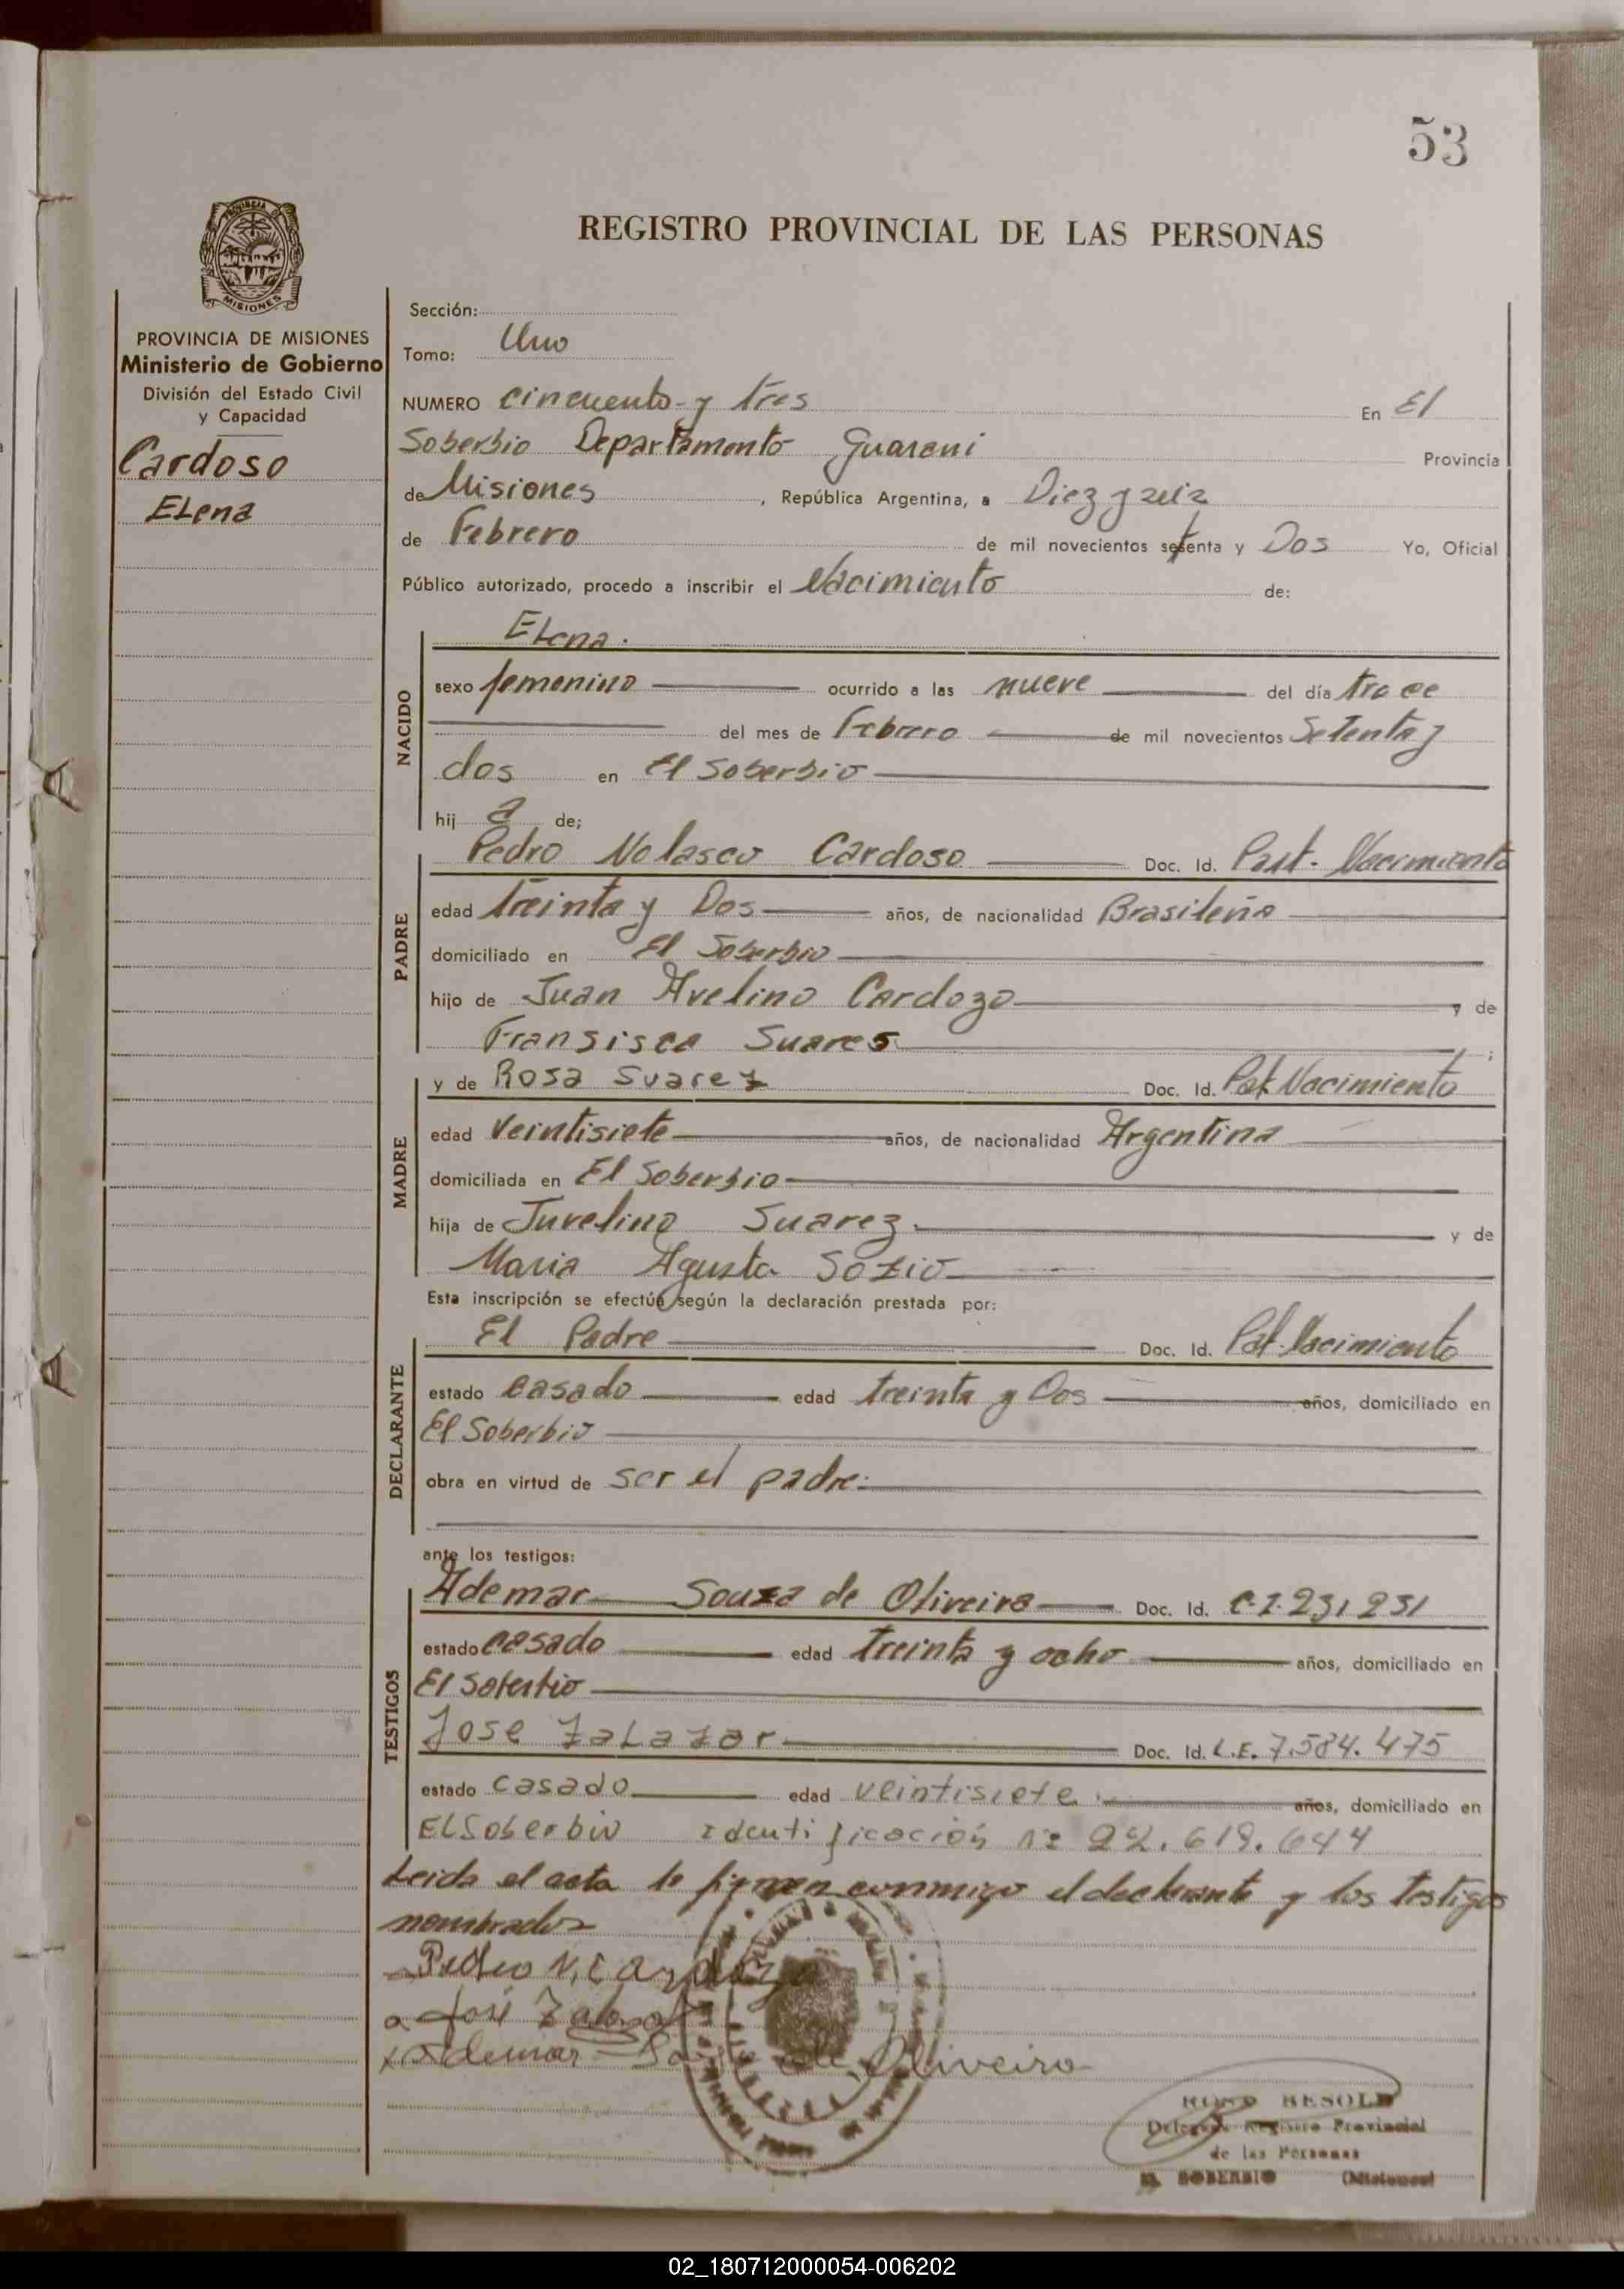 53
REGISTRO PROVINCIAL DE LAS PERSONAS
PROVINCIA DE MISIONES
Ministerio de Gobierno
División del Estado Civil
y Capacidad
Cardoso
ELena
Sección:
Tomo: Uno
NUMERO cincuenta y tres En El
Soberbio Departamento Guarani Provincia
de Misiones, República Argentina, a Diez y seis
de Febrero de mil novecientos setenta y Dos Yo, Oficial
Público autorizado, procedo a inscribir el Nacimiento de:
NACIDO
ELena.
sexo femenino ocurrido a las nueve del día trece
del mes de Febrero de mil novecientos Setenta y
dos en El Soberbio
hij a de;
PADRE
Pedro Nolasco Cardoso Doc. Id. Part. Nacimiento
edad treinta y Dos años, de nacionalidad Brasileña
domiciliado en El Soberbio
hijo de Juan Avelino Cardozo y de
Fransisca Suares;
MADRE
y de Rosa Suarez Doc. Id. Pat. Nacimiento
edad Veintisiete años, de nacionalidad Argentina
domiciliada en El Soberbio
hija de Juvelino Suarez. y de
Maria Agusta Sozio
Esta inscripción se efectúa según la declaración prestada por:
DECLARANTE
El Padre Doc. Id. Pat. Nacimiento
estado casado edad treinta y Dos años, domiciliado en
El Soberbio
obra en virtud de ser el padre.
ante los testigos:
TESTIGOS
Ademar Souza de Oliveira Doc. Id. C.I. 231231
estado casado edad treinta y ocho años, domiciliado en
El Soberbio
Jose ZaLazar Doc. Id. L.E. 7.584.475
estado casado edad veintisiete años, domiciliado en
EL Soberbio identificación Nº 22.619.644
Leida el acta la firman conmigo el declarante y los testigos
nombrados
Pedro N. Cardozo
José Zalazar
Ademar de Oliveira
BESOLD
Delegado Registro Provincial
de las Personas
EL SOBERBIO (Misiones)
02_180712000054-006202